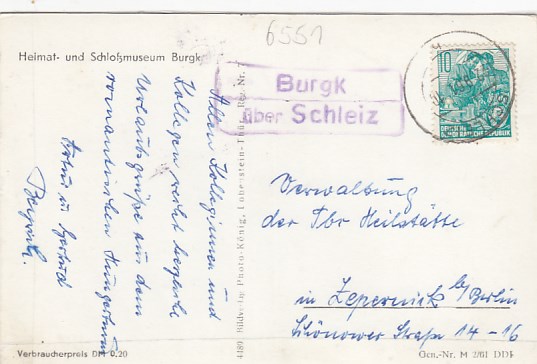 6551
Heimat- und Schloßmuseum Burgk
Burgk
über Schleiz
10
DEUTSCHE
DEMOKRATISCHE REPUBLIK
Allen Kolleginnen und
Kollegen recht herzliche
Urlaubsgrüße aus dem
romantischen
Artur u. Gertrud
4489 Bildverlag Photo-König, Lobenstein-Thür. Reg.-Nr. 7
Verwaltung
der Tbc Heilstätte
in Zepernick b/Berlin
Schönower Straße 14-16
Verbraucherpreis DM 0,20
Gen.-Nr. M 2/61 DDR